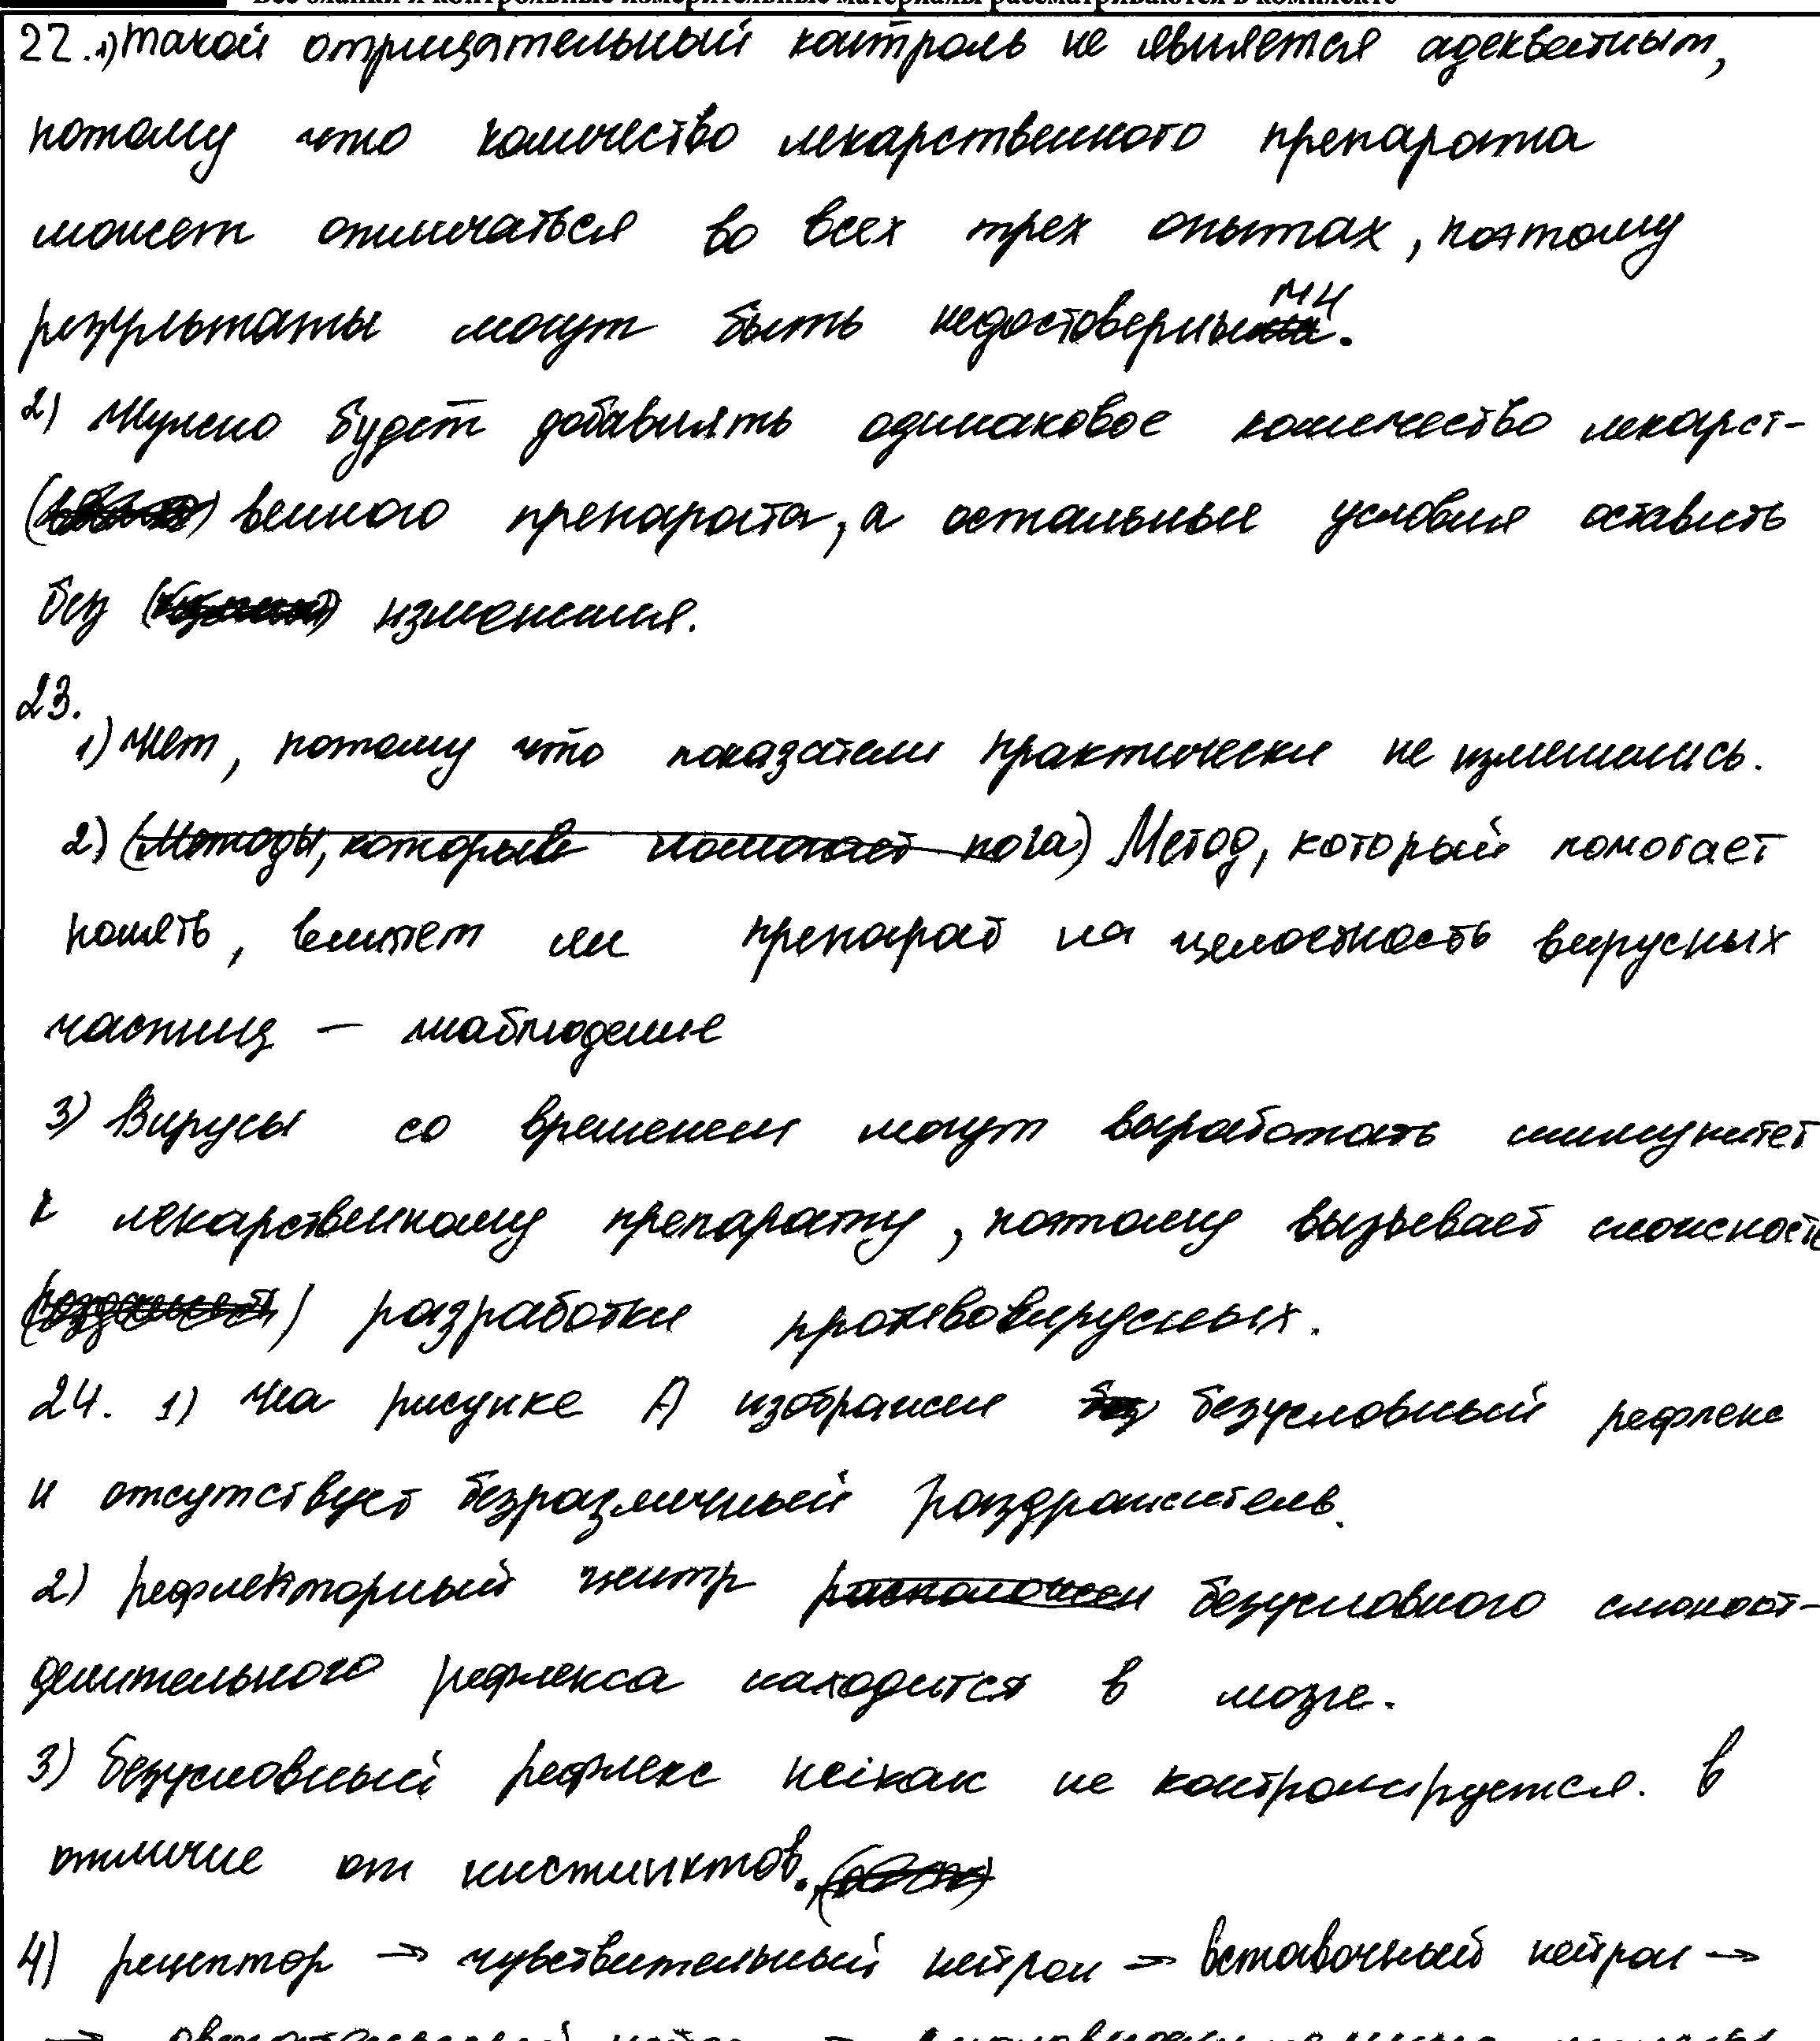 Все бланки и контрольные измерительные материалы рассматриваются в комплекте
22. 1) Такой отрицательный контроль не является адекватным,
потому что количество лекарственного препарата
может отличаться во всех трех опытах, поэтому
результаты могут быть недостоверными.
2) Нужно будет добавлять одинаковое количество лекарст-
венного препарата, а остальные условия оставить
без изменения.
23.
1) Нет, потому что показатели практически не изменились.
2) (Методы, которые помогает пога) Метод, который помогает
понять, влияет ли препарат на целостность вирусных
частиц — наблюдение
3) Вирусы со временем могут выработать иммунитет
к лекарственному препарату, поэтому вызывает сложность
разработки противовирусных.
24. 1) На рисунке А изображен без безусловный рефлекс
и отсутствует безразличный раздражитель.
2) рефлекторный центр расположен безусловного слюноот-
делительного рефлекса находится в мозге.
3) Безусловный рефлекс никак не контролируется. в
отличие от инстинктов.
4) рецептор → чувствительный нейрон → вставочный нейрон →